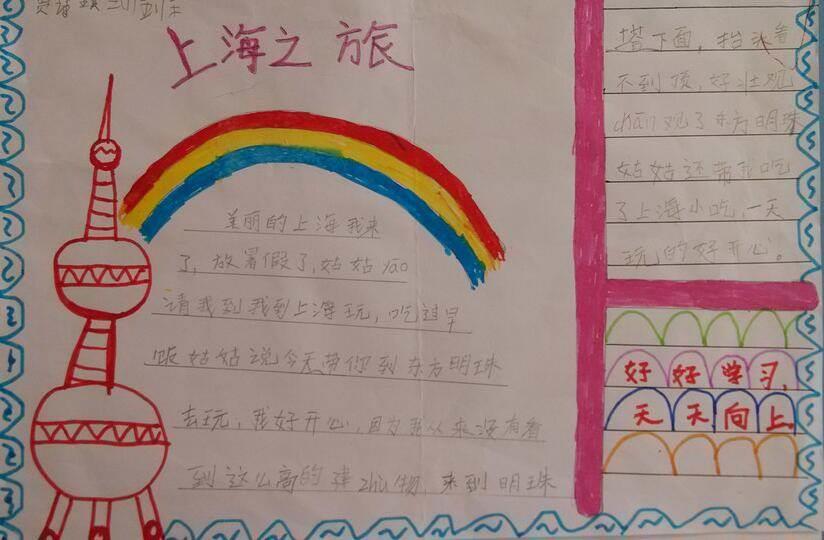 上海之旅
美丽的上海我来
了，放暑假了，姑姑yāo
请我到我到上海玩，吃过早
饭姑姑说今天带你到东方明珠
去玩，我好开心，因为我从来没有看
到这么高的建zhù物，来到明珠
塔下面，抬头看
不到顶，好壮观
chān观了东方明珠
姑姑还带我吃
了上海小吃，一天
玩的好开心。
好好学习，
天天向上。